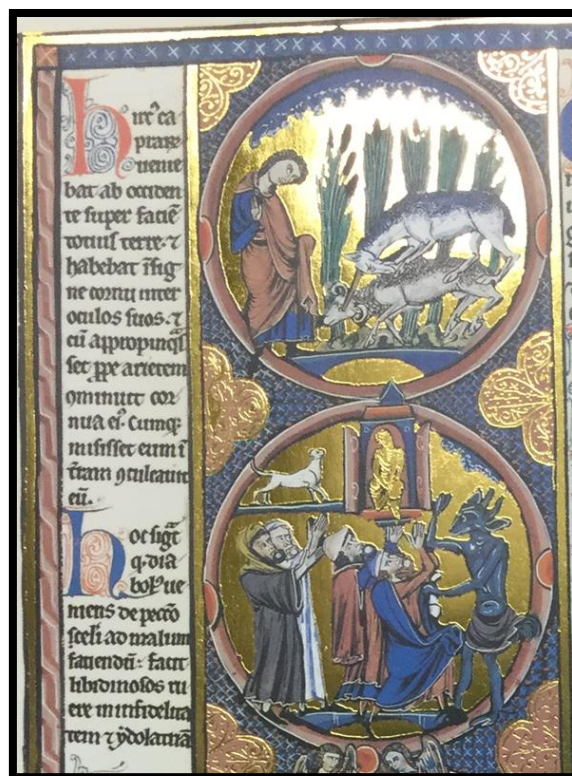 hircꝰ ca
praꝝ
uenie
bat ab occiden
te super faciē
totius terre· ⁊
habebat īsig
ne cornu inter
oculos suos· ⁊
cū appropinq̄s
set ꝓpe arietem
ꝯminuit cor
nua eiꝰ. Cumqꝫ
misisset eum ī
t̄ram ꝯculcauit
eū.
hoc sigt̄
q· dia
bolꝰ ue
niens de pecc̄o
scelī ad malum
faciendū· facit
libidinosos ru
ere in infidelita
tem ⁊ ydolatriā